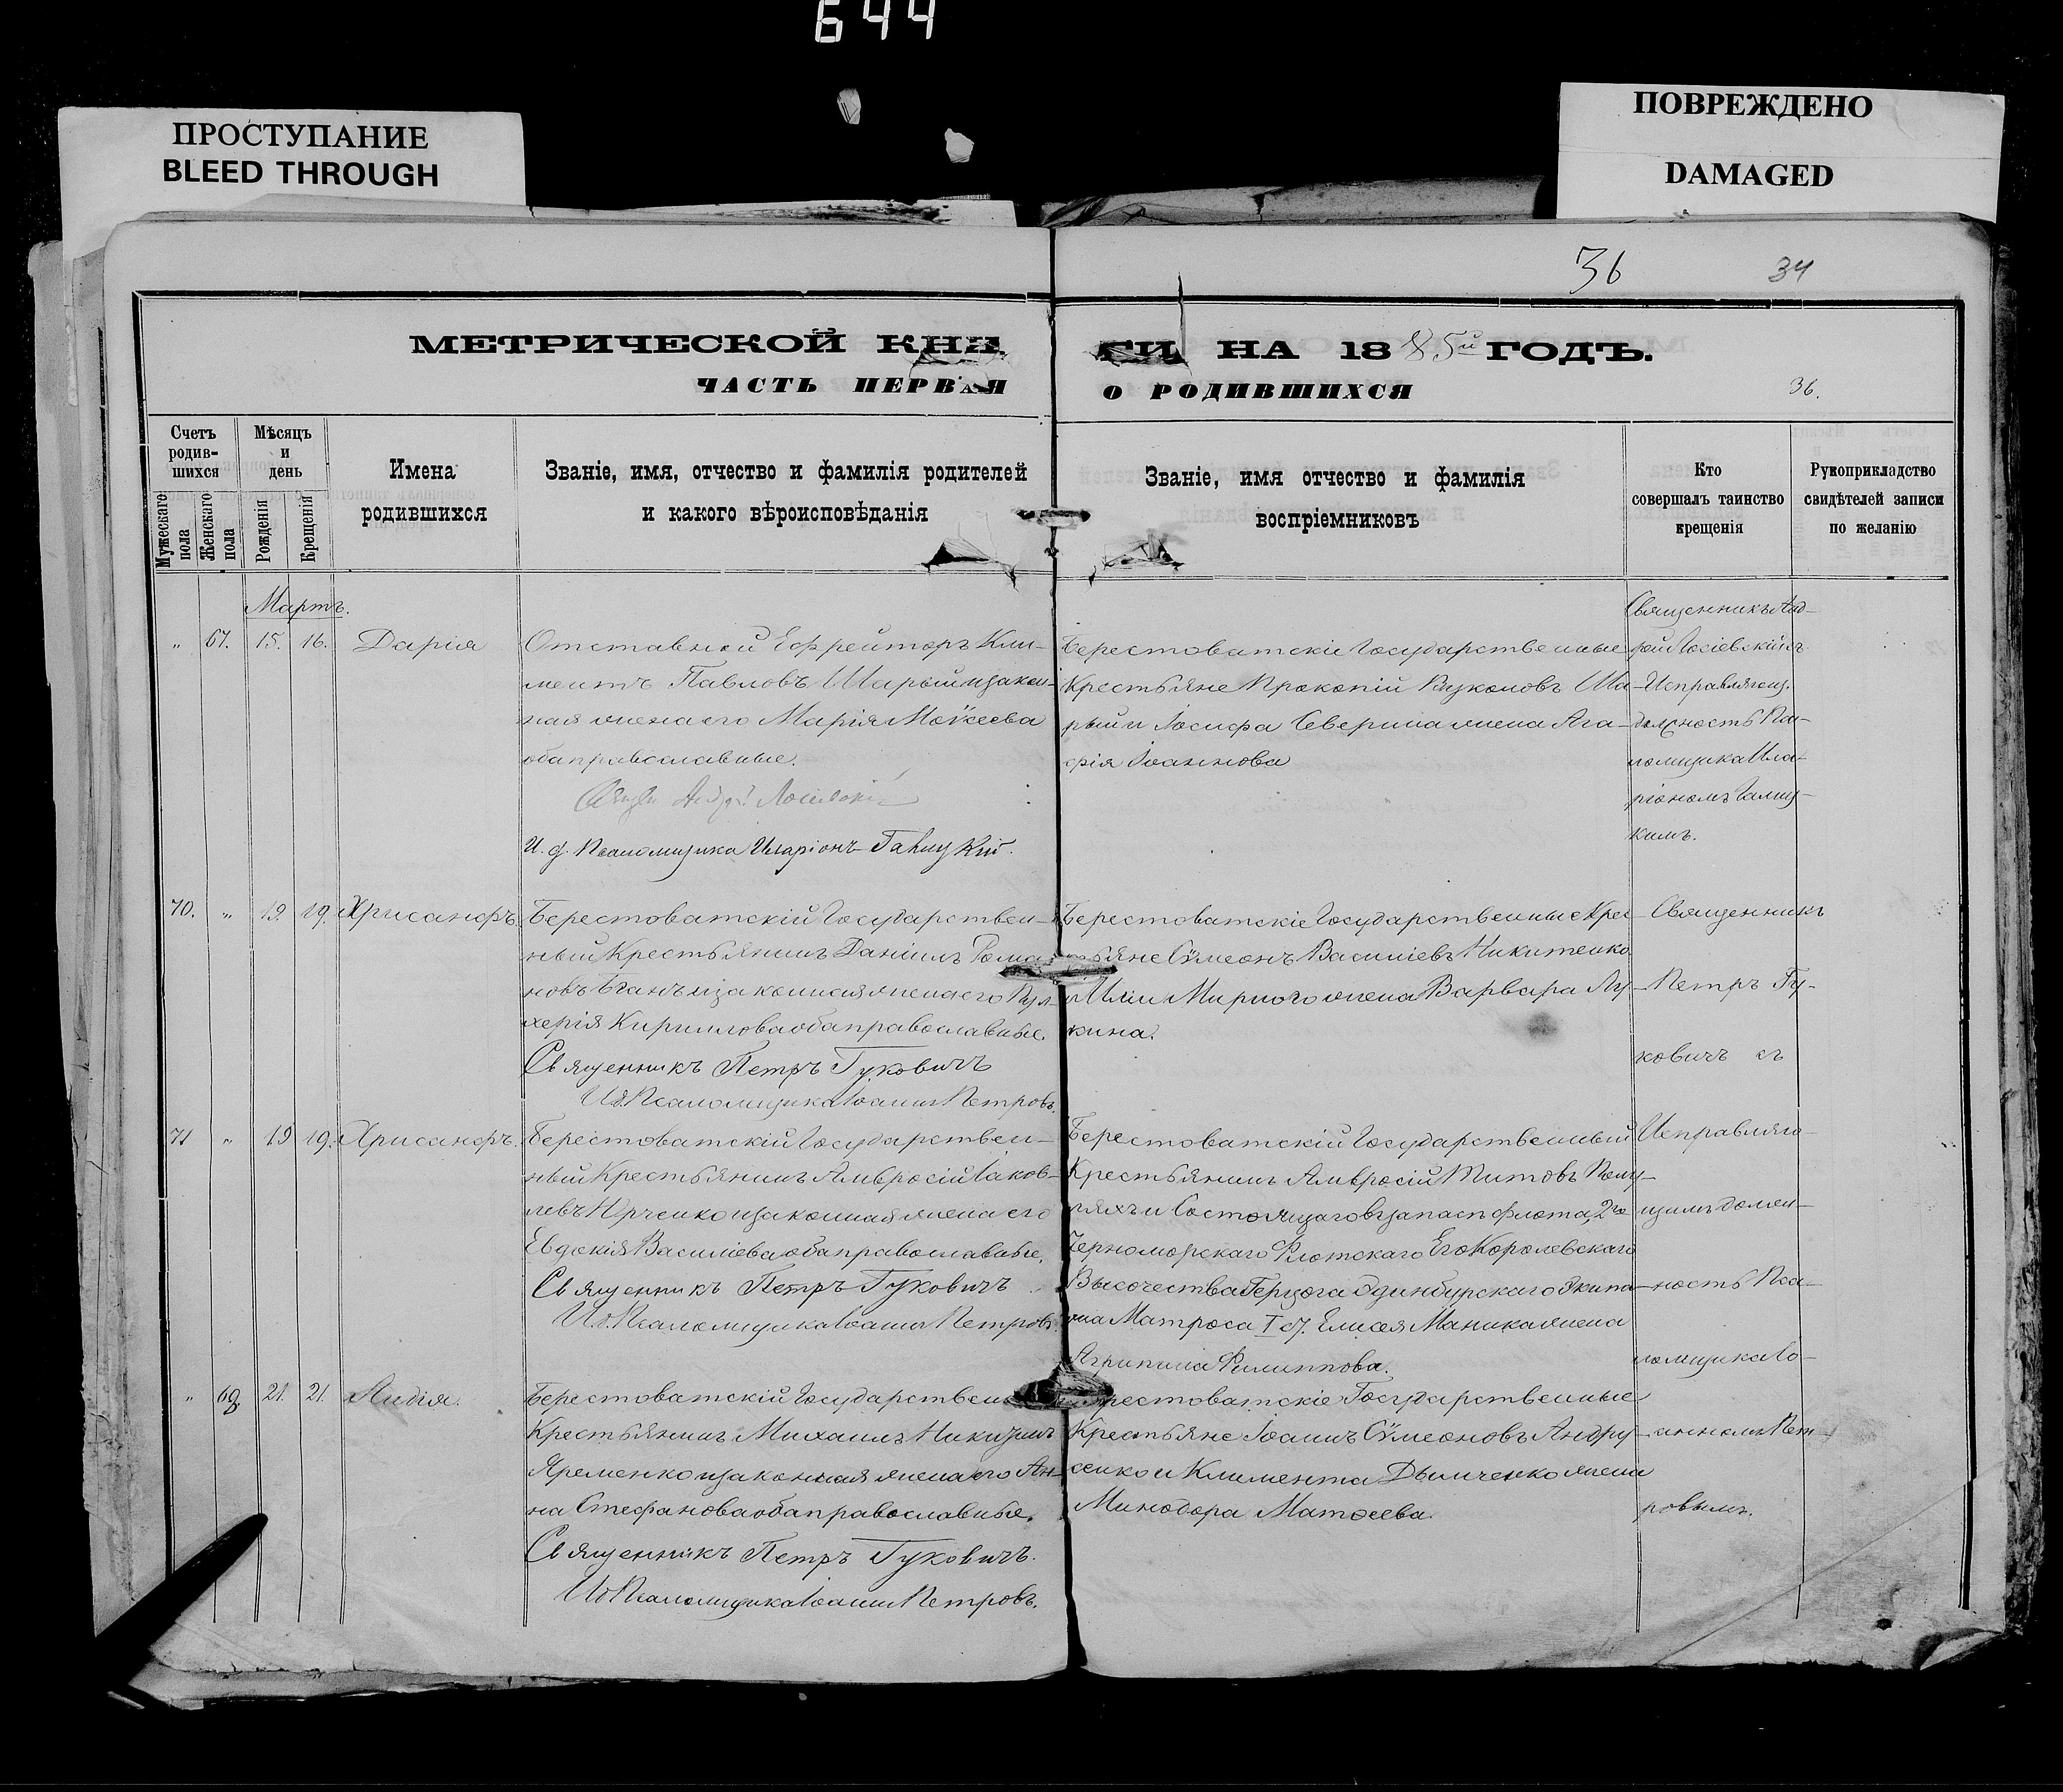 644
ПРОСТУПАНИЕ
BLEED THROUGH
ПОВРЕЖДЕНО
DAMAGED
36 34
МЕТРИЧЕСКОЙ КНИ ГИ НА 1885й ГОДЪ.
ЧАСТЬ ПЕРВАЯ О РОДИВШИХСЯ
36.
Счетъ родив-шихся
Мужескаго пола
Женскаго пола
Мѣсяцъ и день
Рожденія
Крещенія
Имена родившихся
Званіе, имя, отчество и фамилія родителей
и какого вѣроисповѣданія
Званіе, имя отчество и фамилія
воспріемниковъ
Кто
совершалъ таинство
крещенія
Рукоприкладство
свидѣтелей записи
по желанію
Мартъ.
„ 67. 15. 16. Дарія
Отставной Ефрейторъ Кли-
ментъ Павловъ Шарый и закон-
ная жена его Марія Моѵсеева
оба православные.
Андрей Лосіевскій
И. д. Псаломщика Иларіонъ Галицкій.
Берестоватскіе Государственные
Крестьяне Прокопій Ша-
рый и Іосифа Северина жена Ага-
фія Іоаннова
Священникъ Анд-
рей Лосіевскій съ
Исправляющ.
должность Пса-
ломщика Ила-
ріономъ Галиц-
кимъ.
70. „ 19. 19. Хрисанфъ.
Берестоватскій Государствен-
ный Крестьянинъ Даніилъ Рома-
новъ и законная жена его Пул-
херія Кириллова оба православные.
Священникъ Петръ Гуковичъ
И. д. Псаломщика Іоаннъ Петровъ.
Берестоватскіе Государственные Крес-
тьяне Сѵмеонъ Василіевъ Никитенко
и Иліи Мирного жена Варвара Лу-
кина.
Священникъ
Петръ Гу-
ковичъ съ
71 „ 19 19. Хрисанфъ.
Берестоватскій Государствен-
ный Крестьянинъ Амвросій Іаков-
левъ Юрченко и законная жена его
Евдокія Василіева оба православные.
Священникъ Петръ Гуковичъ
И. д. Псаломщика Іоаннъ Петровъ.
Берестоватскій Государственный
Крестьянинъ Амвросій Титовъ Полу-
ляхъ и Состоящаго въ запасѣ флота, 2го
Черноморскаго Флотскаго Его Королевскаго
Высочества Герцога Эдинбургскаго Экипа-
жа Матроса I ст. Елисея Маника жена
Агрипина Филиппова.
Исправляю-
щимъ долж-
ность Пса-
ломщика Іо-
„ 68. 21. 21. Лидія.
Берестоватскій Государствен
Крестьянинъ Михаилъ Никитинъ
Яременко и законная жена его Ан-
на Стефанова оба православные.
Священникъ Петръ Гуковичъ.
И. д. Псаломщика Іоаннъ Петровъ.
Берестоватскіе Государственные
Крестьяне Іоаннъ Сѵмеоновъ Андру-
сенко и Климента Дымченко жена
Минодора Матѳеева.
анномъ Пет-
ровымъ.